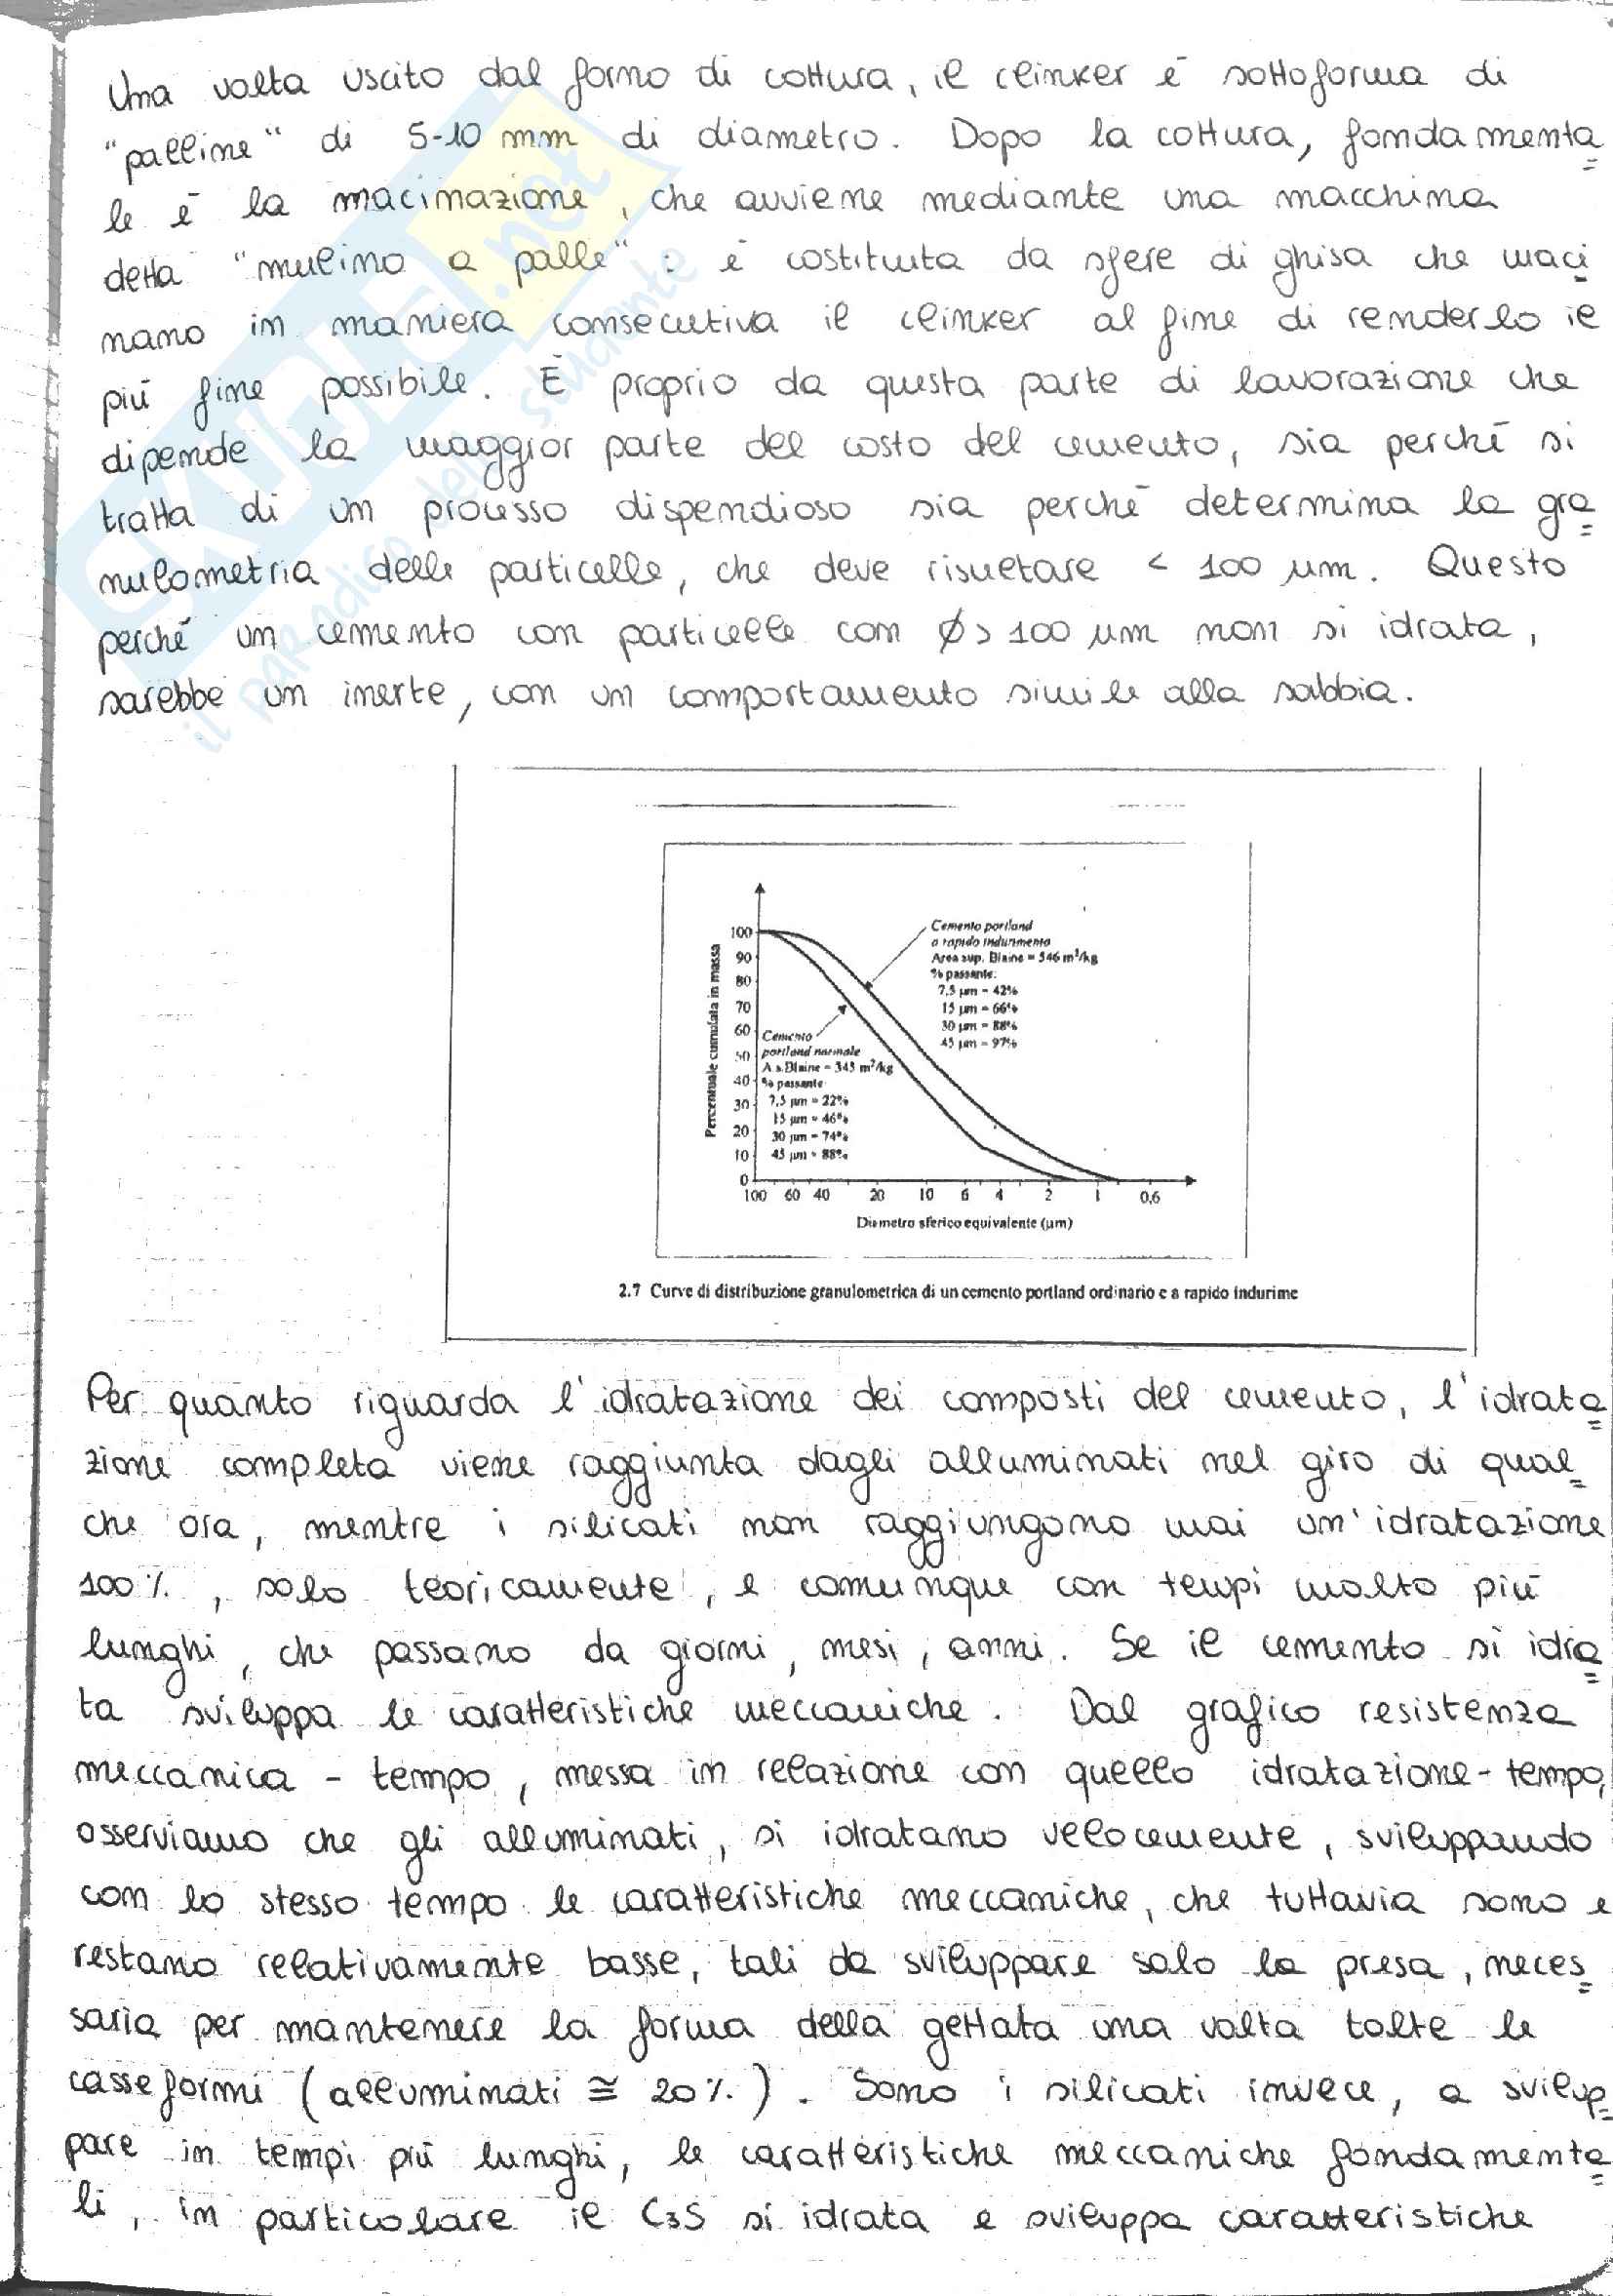 Una volta uscito dal forno di cottura, il clinker è sottoforma di
"palline" di 5-10 mm di diametro. Dopo la cottura, fondamenta
le è la macinazione, che avviene mediante una macchina
detta "mulino a palle": è costituita da sfere di ghisa che maci
nano in maniera consecutiva il clinker al fine di renderlo il
più fine possibile. È proprio da questa parte di lavorazione che
dipende la maggior parte del costo del cemento, sia perché si
tratta di un processo dispendioso sia perché determina la gra
nulometria delle particelle, che deve risultare < 100 µm. Questo
perché un cemento con particelle con Ø > 100 µm non si idrata,
sarebbe un inerte, con un comportamento simile alla sabbia.
SKUOLA.net
il paradiso dello studente
Cemento portland
a rapido indurimento
Area sup. Blaine = 546 m²/kg
% passante:
7,5 µm = 42%
15 µm = 66%
30 µm = 88%
45 µm = 97%
Cemento
portland normale
A.s. Blaine = 345 m²/kg
% passante
7,5 µm = 22%
15 µm = 46%
30 µm = 74%
45 µm = 88%
Percentuale cumulata in massa
100
90
80
70
60
50
40
30
20
10
0
100 60 40 20 10 6 4 2 1 0,6
Diametro sferico equivalente (µm)
2.7 Curve di distribuzione granulometrica di un cemento portland ordinario e a rapido indurime
Per quanto riguarda l'idratazione dei composti del cemento, l'idrata
zione completa viene raggiunta dagli alluminati nel giro di qual
che ora, mentre i silicati non raggiungono mai un'idratazione
100%, solo teoricamente, e comunque con tempi molto più
lunghi, che passano da giorni, mesi, anni. Se il cemento si idra
ta sviluppa le caratteristiche meccaniche. Dal grafico resistenza
meccanica - tempo, messa in relazione con quello idratazione-tempo,
osserviamo che gli alluminati, si idratano velocemente, sviluppando
con lo stesso tempo le caratteristiche meccaniche, che tuttavia sono e
restano relativamente basse, tali da sviluppare solo la presa, neces
saria per mantenere la forma della gettata una volta tolte le
casseformi (alluminati ≅ 20%). Sono i silicati invece, a svilup
pare in tempi più lunghi, le caratteristiche meccaniche fondamenta
li, in particolare il C3S si idrata e sviluppa caratteristiche